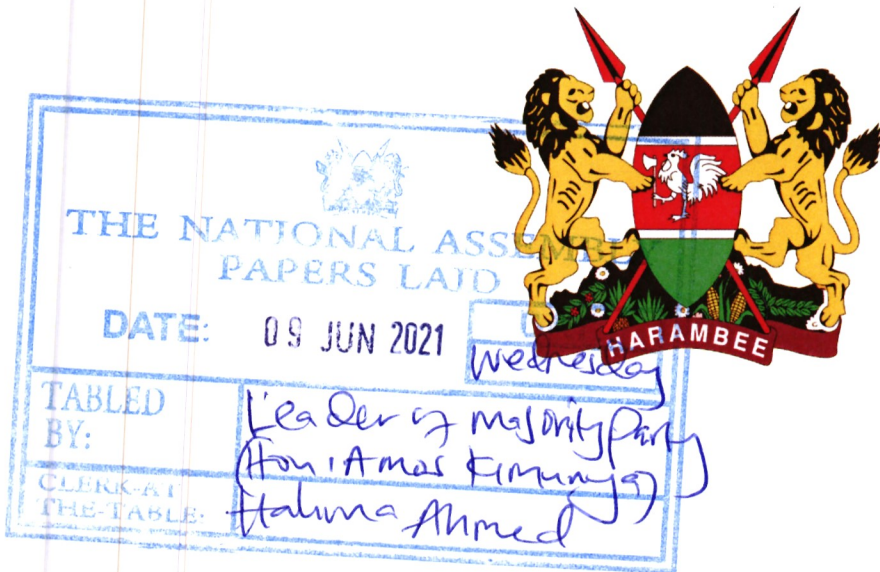 THE NATIONAL ASSEMBLY
PAPERS LAID
DATE: 09 JUN 2021
Wednesday
TABLED BY:
Leader of Majority Party
(Hon. Amos Kimunya)
CLERK-AT THE-TABLE:
Halima Ahmed
HARAMBEE